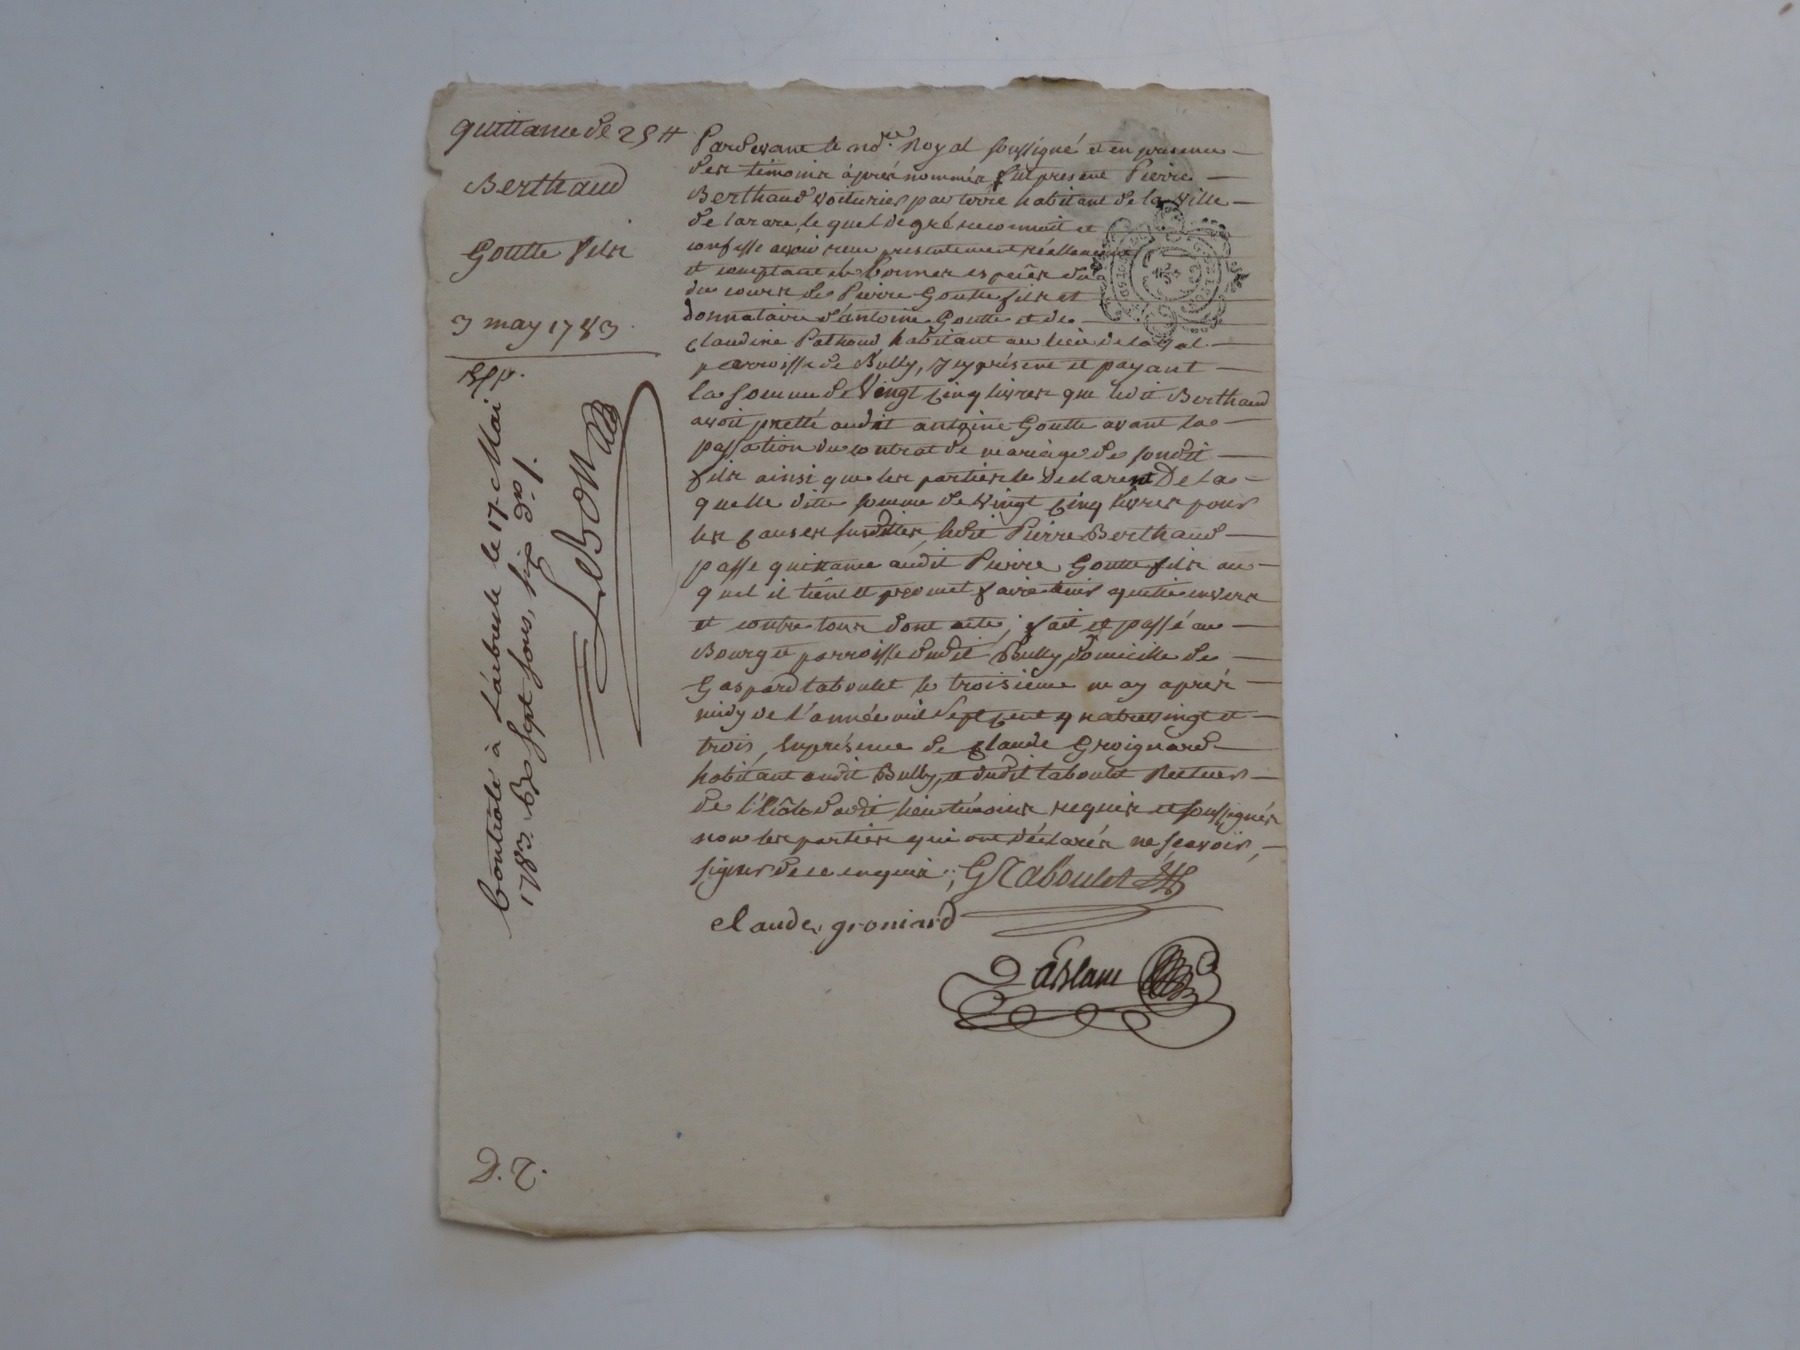 quittance de 25 ₶
Berthaud
Goutte fils
3 may 1783.
Exp.
Contrôlé à L'arbresle le 17 Mai
1783. Rx Sept sous, six drs.
LeBon
Pardevant le nore. Royal soussigné et en presence
des témoins àprés nommés fut present Pierre
Berthaud voiturier par terre habitant de la ville
de tarare, le quel de gré reconnait et
confesse avoir reçu presentement réellement
et comptant en bonnes espêces du
du cours de Pierre Goutte fils et
donnataire d'antoine Goutte et de
Claudine Pathoud habitant au lieu de
parroisse de Bully, Icy présent et payant
la somme de Vingt Cinq livres que ledit Berthaud
avoit pretté audit antoine Goutte avant la
passation du contrat de mariage de sondit
fils ainsi que les parties le declarent De la
quelle ditte somme de Vingt Cinq livres pour
les Causes susdittes, ledit Pierre Berthaud
passe quittance audit Pierre Goutte fils au
quel il tient et promet faire tenir quitte envers
et contre tous dont acte; fait et passé au
Bourg et parroisse dudit Bully domicille de
Gaspard taboulet le troisiême may aprés
midy de l'année mil Sept Cent quatrevingt et
trois, En présence de Claude Groignard
habitant audit Bully, et dudit taboulet Recteur
de l'Ecôle dudit lieu témoins requis et soussignés
non les parties qui ont déclarés ne sçavoir,
signer de ce enquis; G Taboulet
claude groniard
D. T.